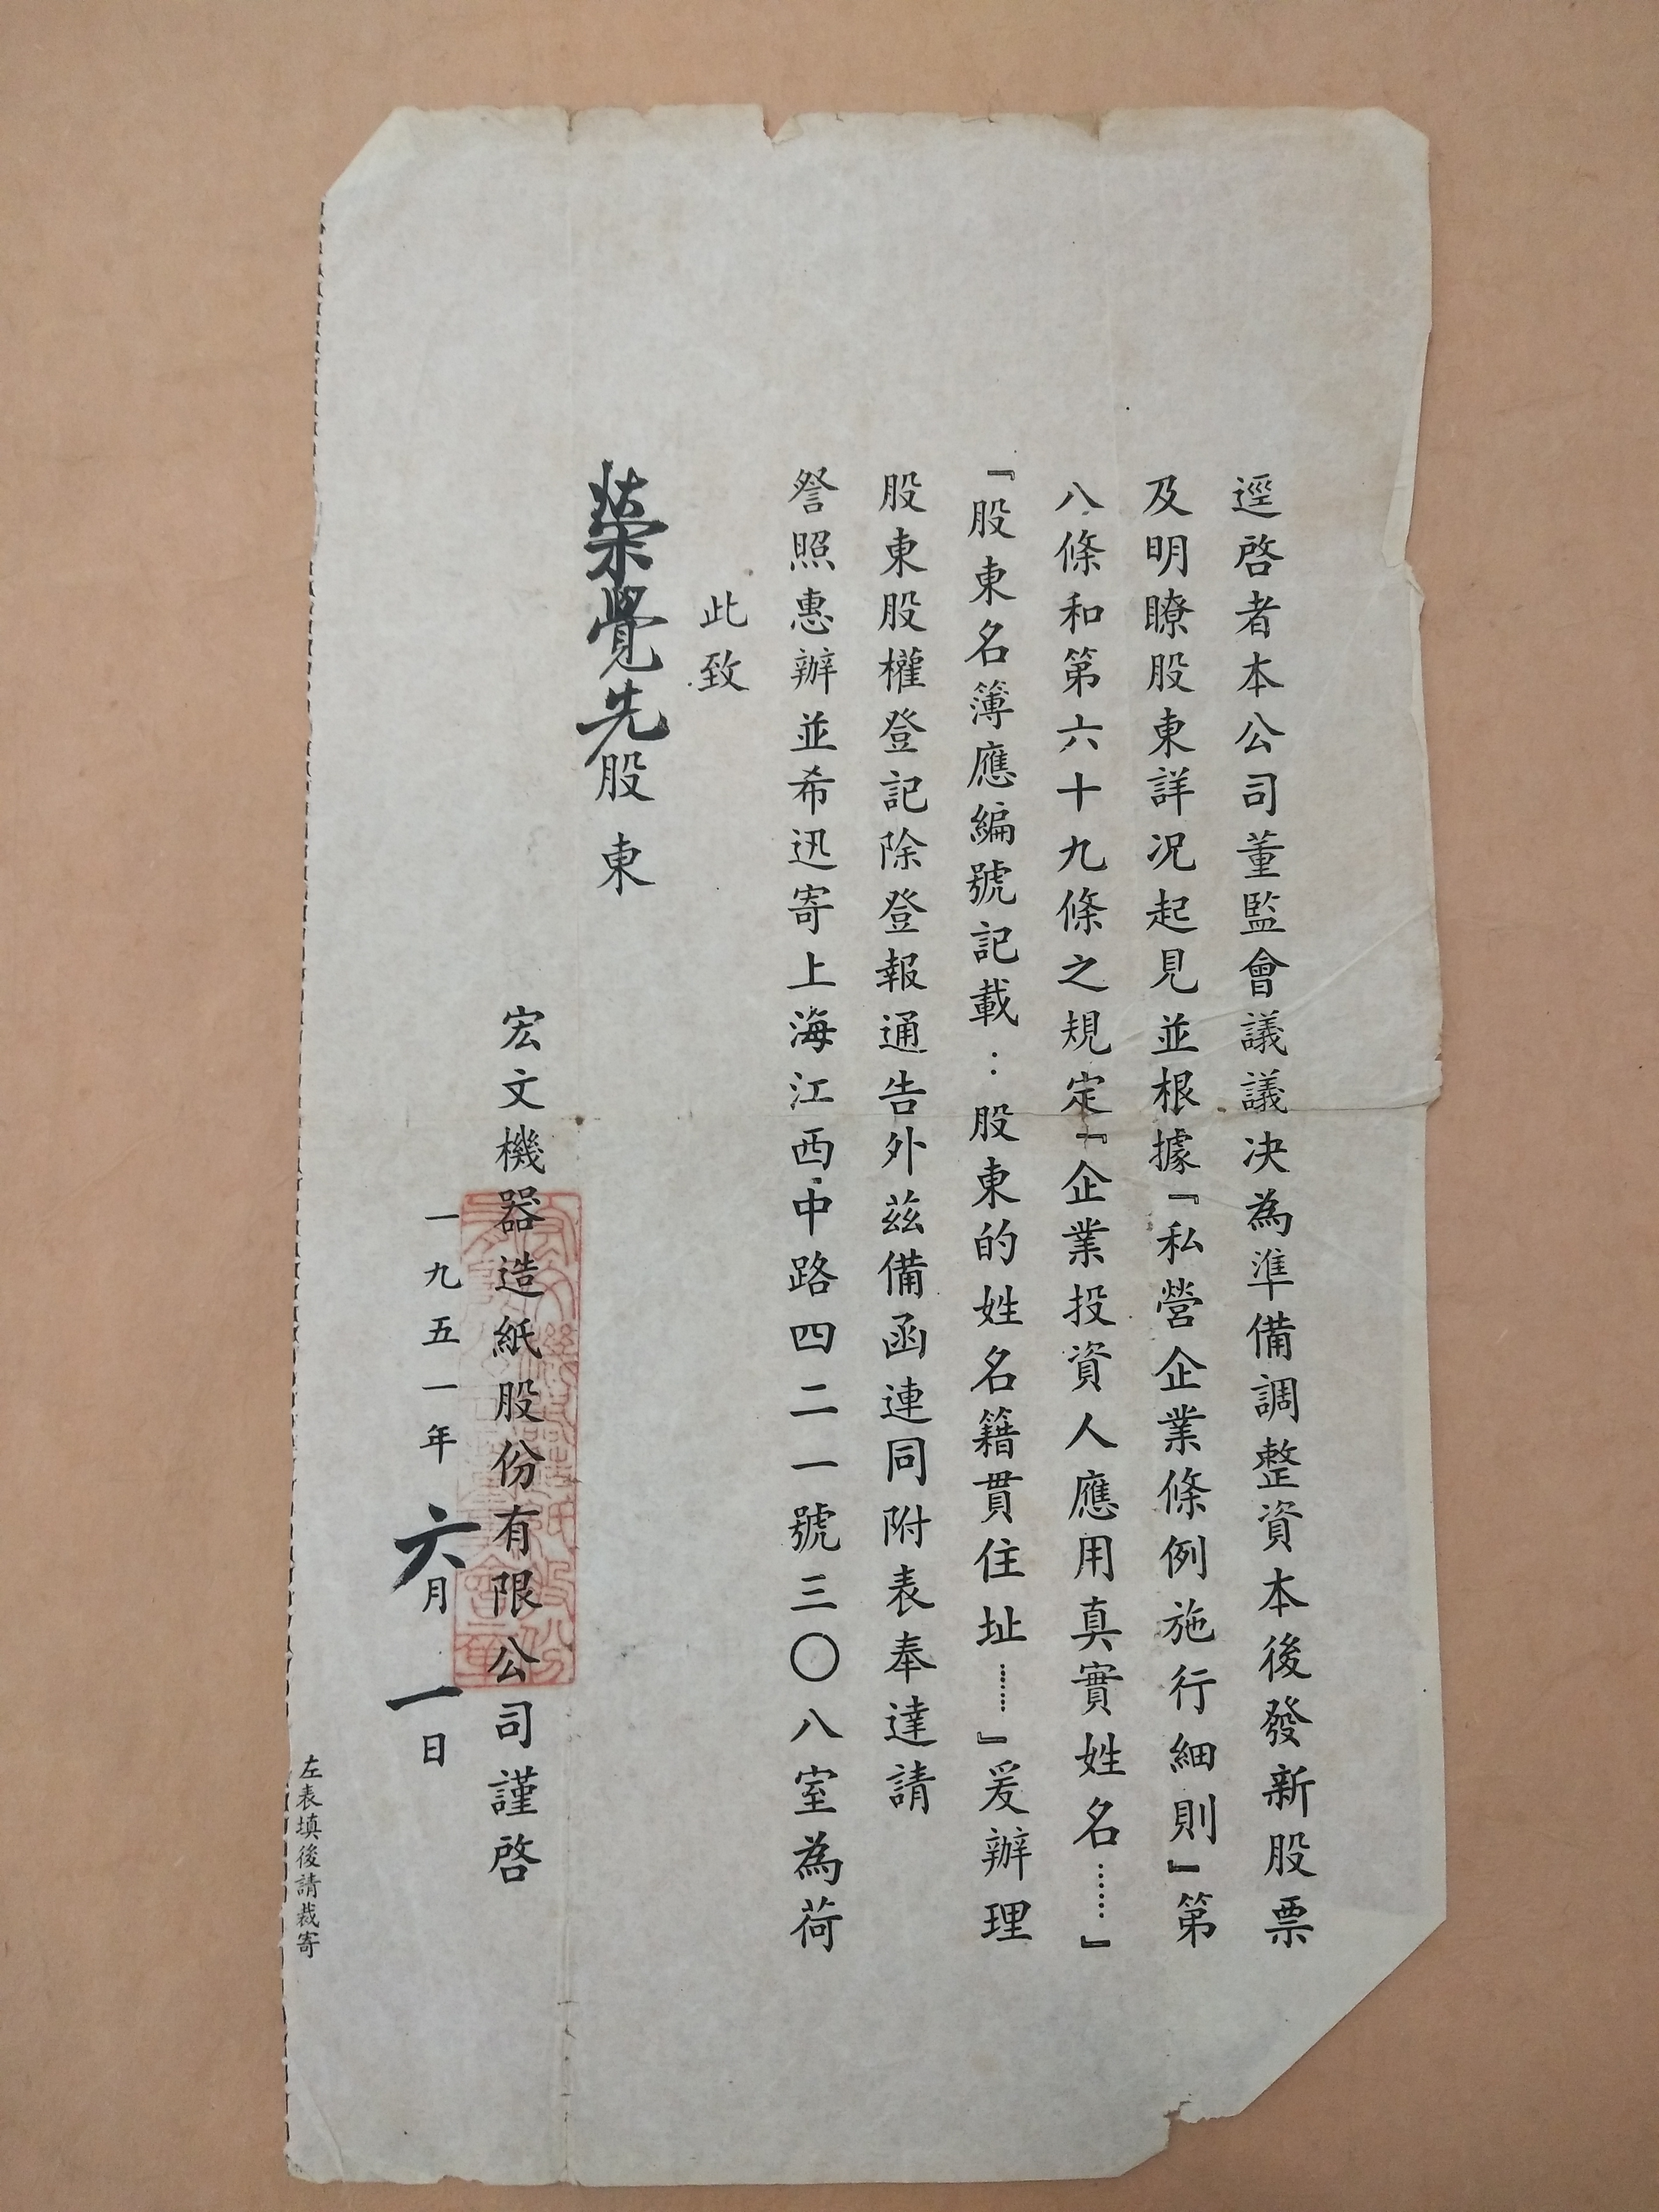 逕啓者本公司董監會議議决為準備調整資本後發新股票
及明瞭股東詳况起見並根據『私營企業條例施行細則』第
八條和第六十九條之規定『企業投資人應用真實姓名……』
『股東名簿應編號記載：股東的姓名籍貫住址……』爰辦理
股東股權登記除登報通告外茲備函連同附表奉達請
詧照惠辦並希迅寄上海江西中路四二一號三〇八室為荷
此致
榮覺先股東
宏文機器造紙股份有限公司謹啓
一九五一年六月一日
左表填後請裁寄